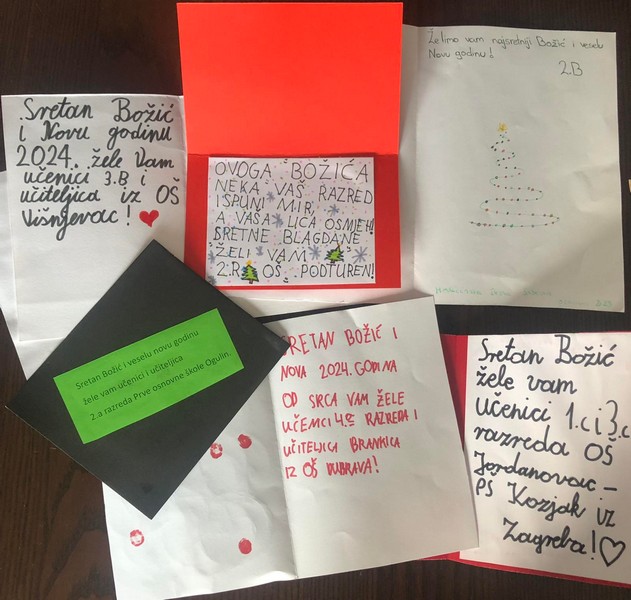 Sretan Božić
i Novu godinu
2024. žele Vam
učenici 3.B i
učiteljica iz OŠ
Višnjevac!
OVOGA BOŽIĆA
NEKA VAŠ RAZRED
ISPUNI MIR,
A VAŠA LICA OSMJEH!
SRETNE BLAGDANE
ŽELI VAM
2.R OŠ PODTUREN!
Želimo vam najsretniji Božić i veselu
Novu godinu!
2.B
Sretan Božić i veselu novu godinu
žele vam učenici i učiteljica
2.a razreda Prve osnovne škole Ogulin.
SRETAN BOŽIĆ I
NOVA 2024. GODINA
OD SRCA VAM ŽELE
UČENICI 4.C RAZREDA I
UČITELJICA BRANKICA
IZ OŠ DUBRAVA!
Sretan Božić
žele vam
učenici 1.c i 3.c
razreda OŠ
Jordanovac-
PŠ Kozjak iz
Zagreba!